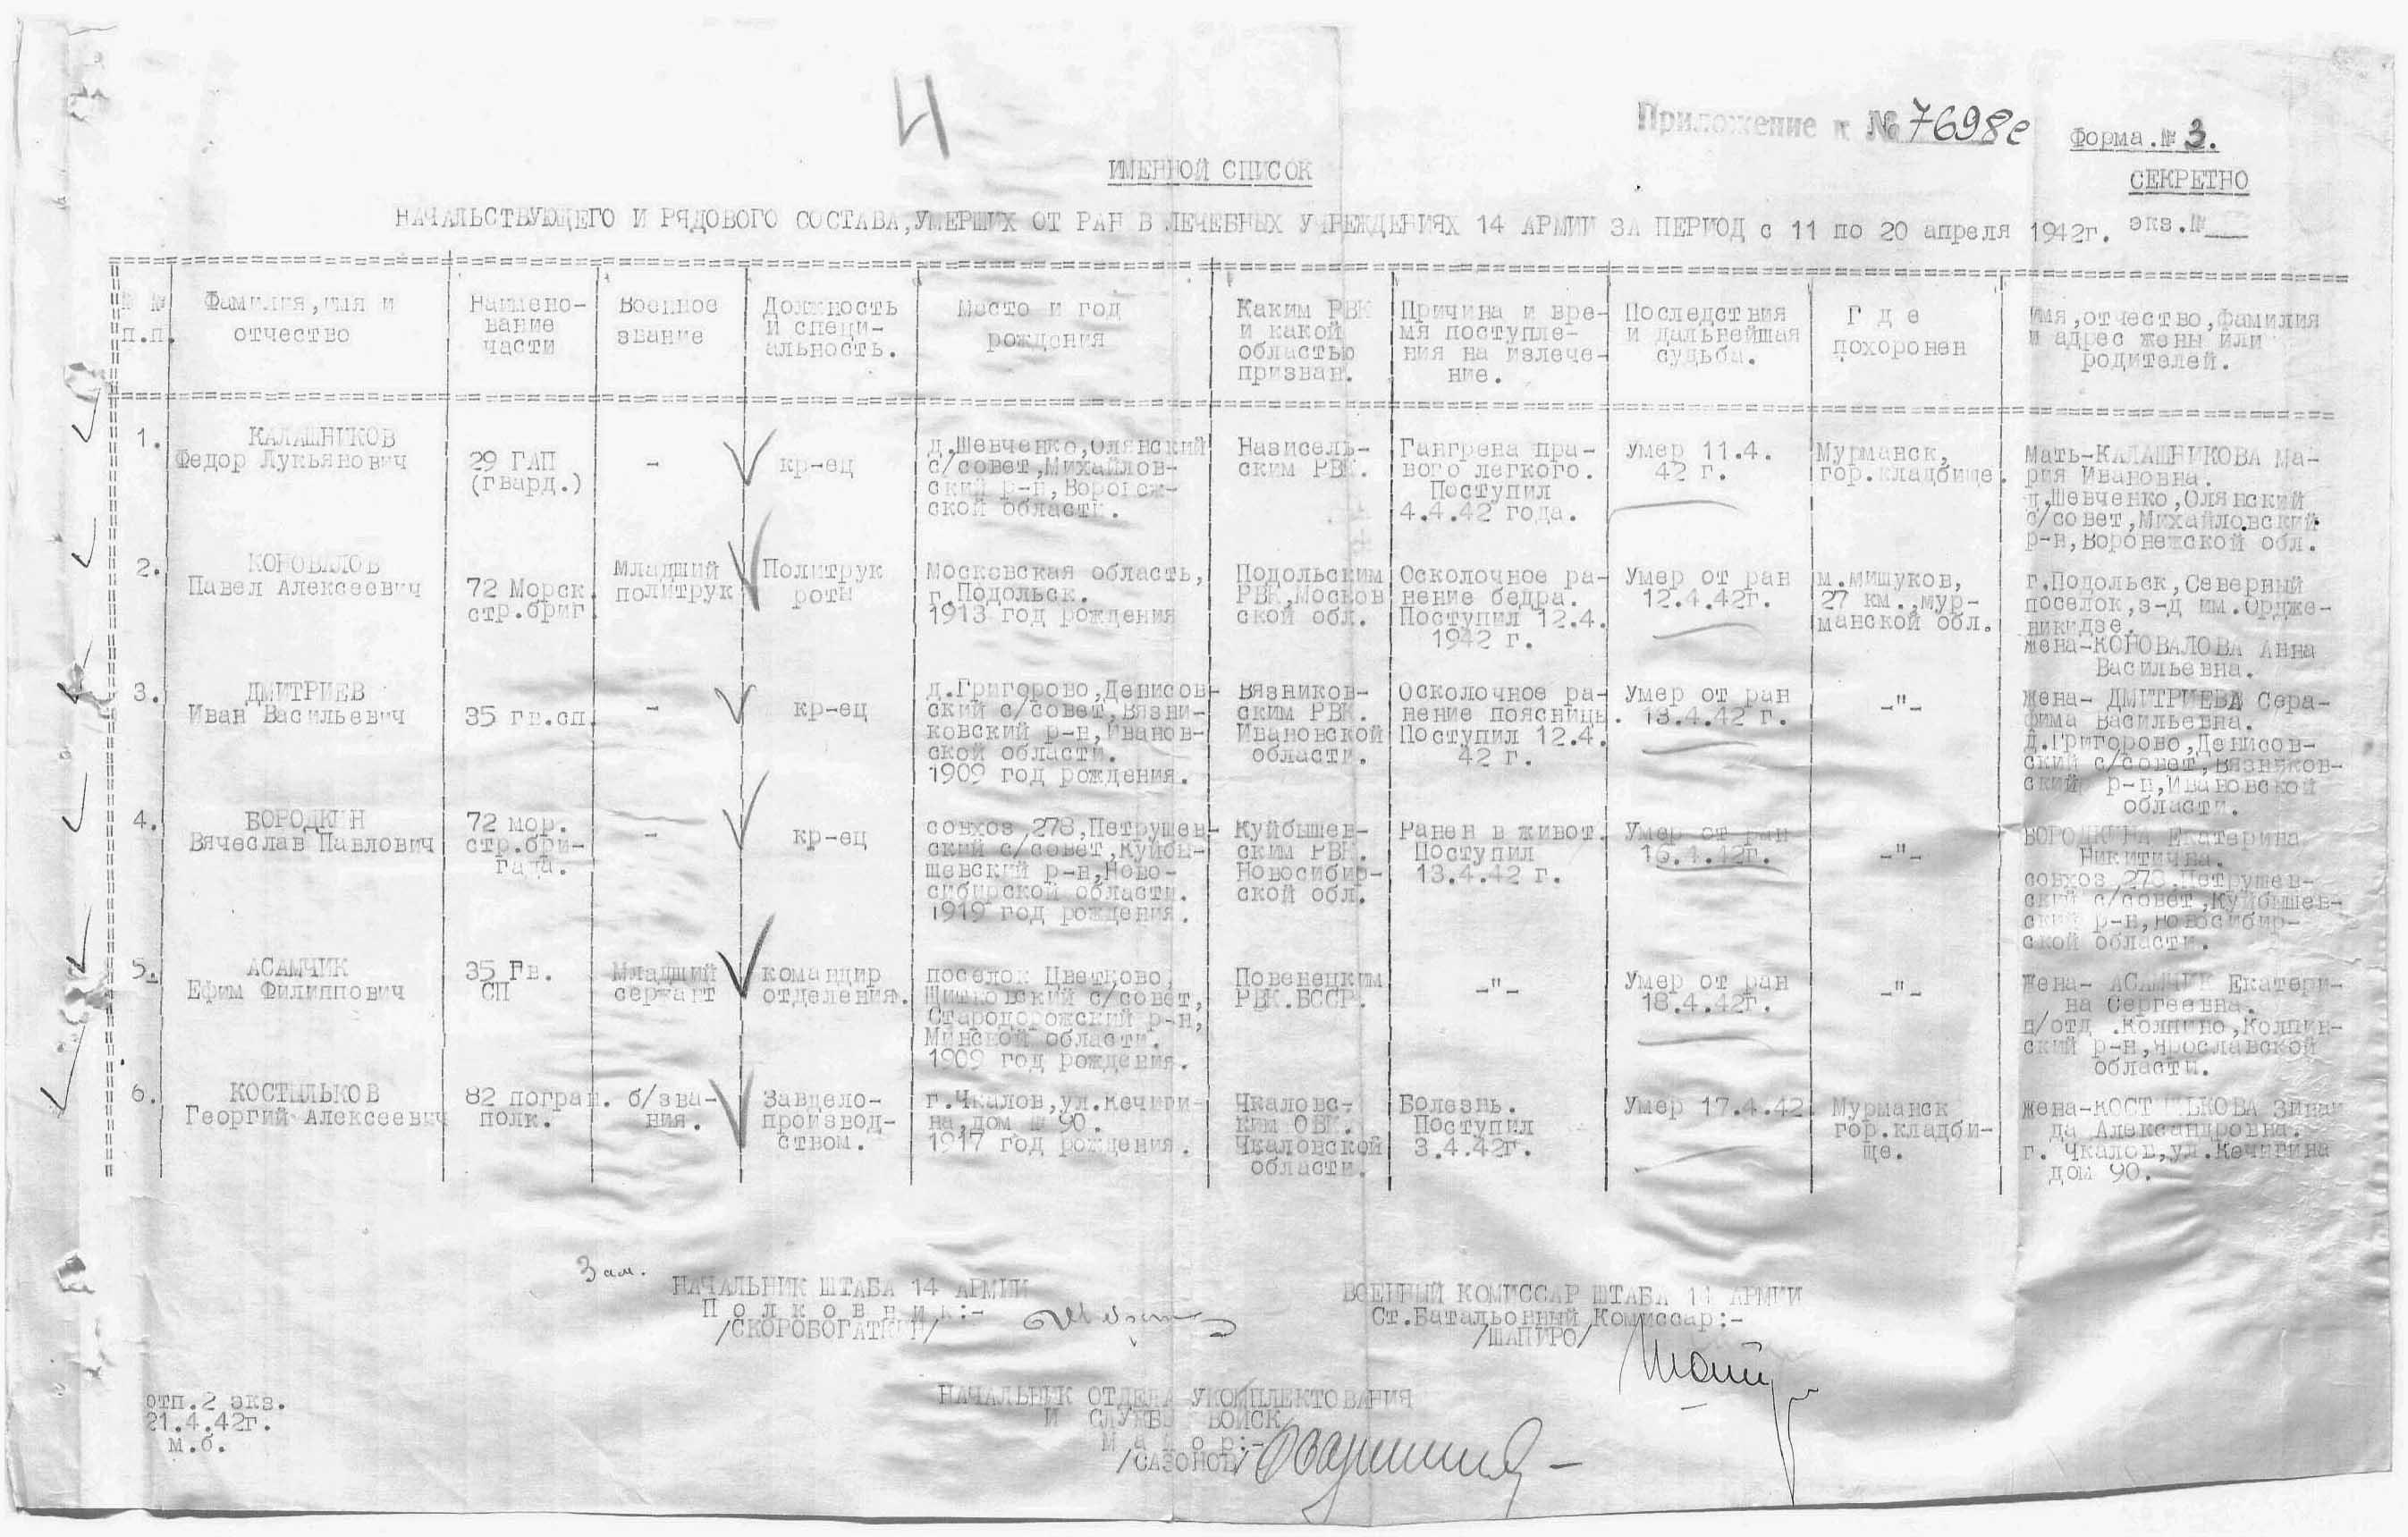 И
Приложение к № 7698с
Форма.№ 3.
СЕКРЕТНО
экз.№__
ИМЕННОЙ СПИСОК
НАЧАЛЬСТВУЮЩЕГО И РЯДОВОГО СОСТАВА,УМЕРШИХ ОТ РАН В ЛЕЧЕБНЫХ УЧРЕЖДЕНИЯХ 14 АРМИИ ЗА ПЕРИОД с 11 по 20 апреля 1942г.
№ №
п.п.
Фамилия,имя и
отчество
Наимено-
вание
части
Военное
звание
Должность
и специ-
альность.
Место и год
рождения
Каким РВК
и какой
областью
призван.
Причина и вре-
мя поступле-
ния на излече-
ние.
Последствия
и дальнейшая
судьба.
Г д е
похоронен
Имя,отчество,фамилия
и адрес жены или
родителей.
1.
КАЛАШНИКОВ
Федор Лукьянович
29 ГАП
(гвард.)
-
кр-ец
д.Шевченко,Олянский
с/совет,Михайлов-
ский р-н,Воронеж-
ской области.
Нависель-
ским РВК.
Гангрена пра-
вого легкого.
Поступил
4.4.42 года.
Умер 11.4.
42 г.
Мурманск,
гор.кладбище.
Мать-КАЛАШНИКОВА Ма-
рия Ивановна.
д.Шевченко,Олянский
с/совет,Михайловский
р-н,Воронежской обл.
2.
КОНОВАЛОВ
Павел Алексеевич
72 Морск.
стр.бриг.
Младший
политрук
Политрук
роты
Московская область,
г.Подольск.
1913 год рождения
Подольским
РВК,Москов
ской обл.
Осколочное ра-
нение бедра.
Поступил 12.4.
1942 г.
Умер от ран
12.4.42г.
м.Мишуков,
27 км.,Мур-
манской обл.
г.Подольск,Северный
поселок,з-д им.Ордже-
никидзе.
жена-КОНОВАЛОВА Анна
Васильевна.
3.
ДМИТРИЕВ
Иван Васильевич
35 гв.сп.
-
кр-ец
д.Григорово,Денисов-
ский с/совет,Вязни-
ковский р-н,Иванов-
ской области.
1909 год рождения.
Вязников-
ским РВК.
Ивановской
области.
Осколочное ра-
нение поясницы.
Поступил 12.4.
42 г.
Умер от ран
13.4.42 г.
-"-
Жена- ДМИТРИЕВА Сера-
фима Васильевна.
д.Григорово,Денисов-
ский с/совет,Вязников-
ский р-н,Ивановской
области.
4.
БОРОДКИН
Вячеслав Павлович
72 мор.
стр.бри-
гада.
-
кр-ец
совхоз 278,Петрушев-
ский с/совет,Куйбы-
шевский р-н,Ново-
сибирской области.
1919 год рождения.
Куйбышев-
ским РВК.
Новосибир-
ской обл.
Ранен в живот.
Поступил
13.4.42 г.
Умер от ран
16.4.42г.
-"-
БОРОДКИНА Екатерина
Никитична.
совхоз 278,Петрушев-
ский с/совет,Куйбышев-
ский р-н,Новосибир-
ской области.
5.
АСАМЧИК
Ефим Филиппович
35 Гв.
СП
Младший
сержант
командир
отделения.
поселок Цветково,
Шитковский с/совет,
Стародорожский р-н,
Минской области.
1909 год рождения.
Повенецким
РВК.БССР.
-"-
Умер от ран
18.4.42г.
-"-
Жена- АСАМЧИК Екатери-
на Сергеевна.
п/отд .Колпино,Колпин-
ский р-н,Ярославской
области.
6.
КОСТЫЛЬКОВ
Георгий Алексеевич
82 погран.
полк.
б/зва-
ния.
Завдело-
производ-
ством.
г.Чкалов,ул.Кечиги-
на,дом № 90.
1917 год рождения.
Чкаловс-
ким ОВК.
Чкаловской
области.
Болезнь.
Поступил
3.4.42г.
Умер 17.4.42
Мурманск
гор.кладби-
ще.
Жена-КОСТЫЛЬКОВА Зинаи
да Александровна.
г. Чкалов,ул.Кечигина
дом 90.
Зам.
НАЧАЛЬНИК ШТАБА 14 АРМИИ
П о л к о в н и к:-
/СКОРОБОГАТКИН/
ВОЕННЫЙ КОМИССАР ШТАБА 14 АРМИИ
Ст.Батальонный Комиссар:-
/ШАПИРО/
НАЧАЛЬНИК ОТДЕЛА УКОМПЛЕКТОВАНИЯ
И СЛУЖБЫ ВОЙСК
м а й о р:-
/САЗОНОВ/
отп.2 экз.
21.4.42г.
м.б.